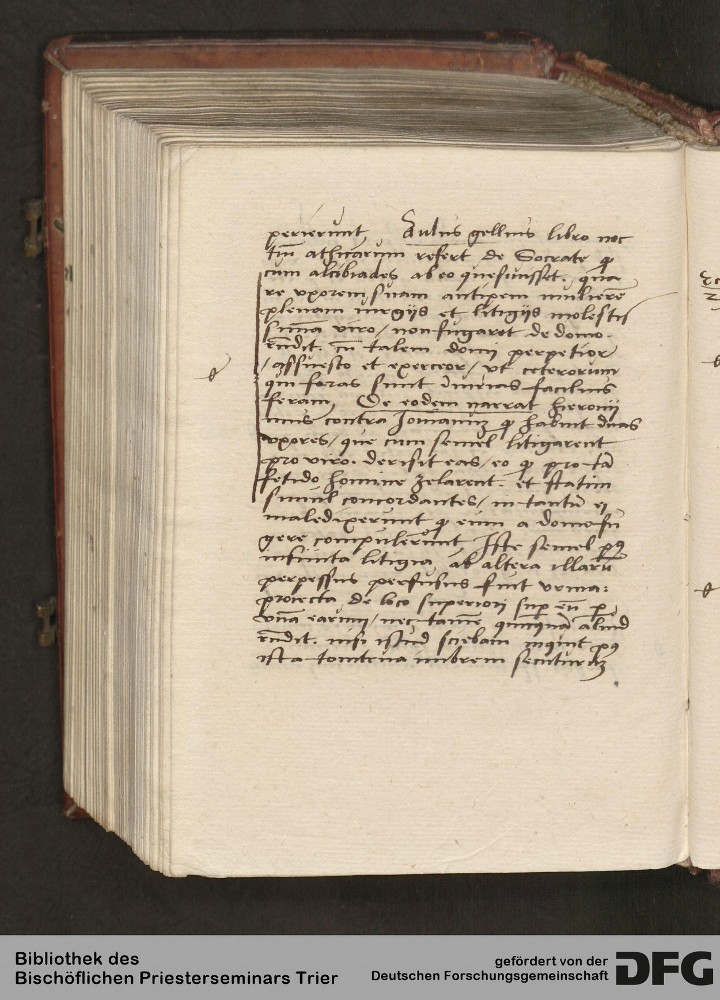 perierunt Aulus gellius libro noc
tiu athicarum refert de Socrate q
cum alcibiades ab eo quesiuisset. qua
re vxorem suam antipem mulierē
plenam iurgijs et litigijs molestis
simā viro / non fugaret de domo.
rñdit. cū talem domj perpetior
/ assuesco et exerceor / vt ceterorum
qui foras sunt iniurias facilius
feram, De eodem narrat hieronij
mus contra Jouianuz q habuit duas
vxores / que cum semel litigarent
pro viro. derisit eas / eo q pro tā
fetido homine zelarent. et statim
simul concordantes / in tantū ej
maledixerunt q eum a domo fu
gere compulerunt Iste semel p9
infinita litigia, ab altera illarū
perpessus perfusus fuit vrina:
proiecta de loco superiori sup eū p
vnā earum / nec tamē quicquā aliud
rñdit. nisi istud sciebam inquit p9
ista tonitrua imbrem secuturuz
Bibliothek des
Bischöflichen Priesterseminars Trier
gefördert von der
Deutschen Forschungsgemeinschaft
DFG